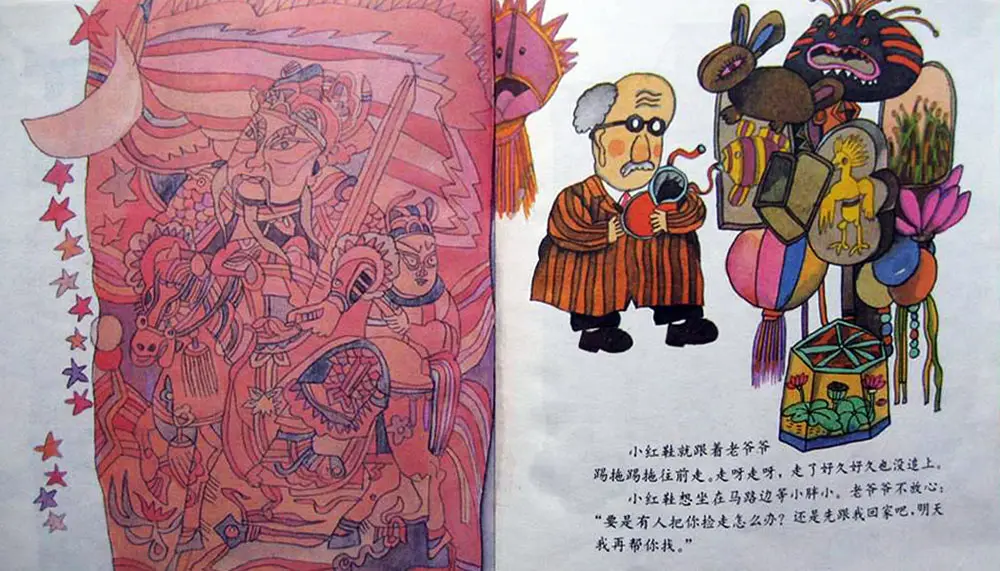 小红鞋就跟着老爷爷
踢拖踢拖往前走。走呀走呀，走了好久好久也没追上。
小红鞋想坐在马路边等小胖小。老爷爷不放心：
“要是有人把你捡走怎么办？还是先跟我回家吧，明天
我再帮你找。”